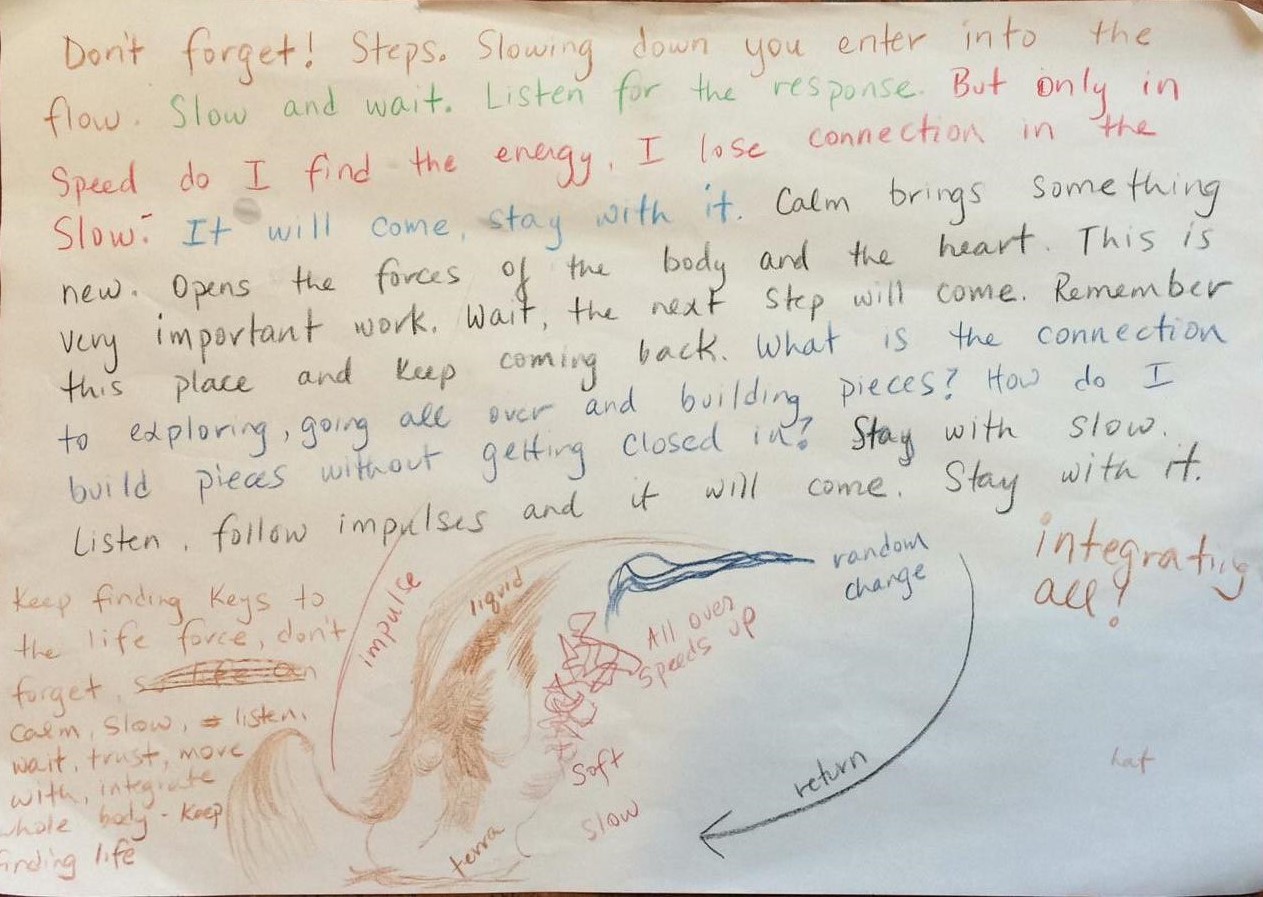 Don't forget! Steps. Slowing down you enter into the
flow. Slow and wait. Listen for the response. But only in
Speed do I find the energy. I lose connection in the
Slow. It will come, stay with it. Calm brings something
new. Opens the forces of the body and the heart. This is
very important work. Wait, the next step will come. Remember
this place and keep coming back. What is the connection
to exploring, going all over and building pieces? How do I
build pieces without getting closed in? Stay with slow.
Listen, follow impulses and it will come. Stay with it.
integrating
all!
random
change
impulse
liquid
All over
speeds up
Keep finding Keys to
the life force, don't
forget,
calm, slow, listen,
wait, trust, move
with, integrate
whole body - keep
finding life
Soft
slow
terra
return